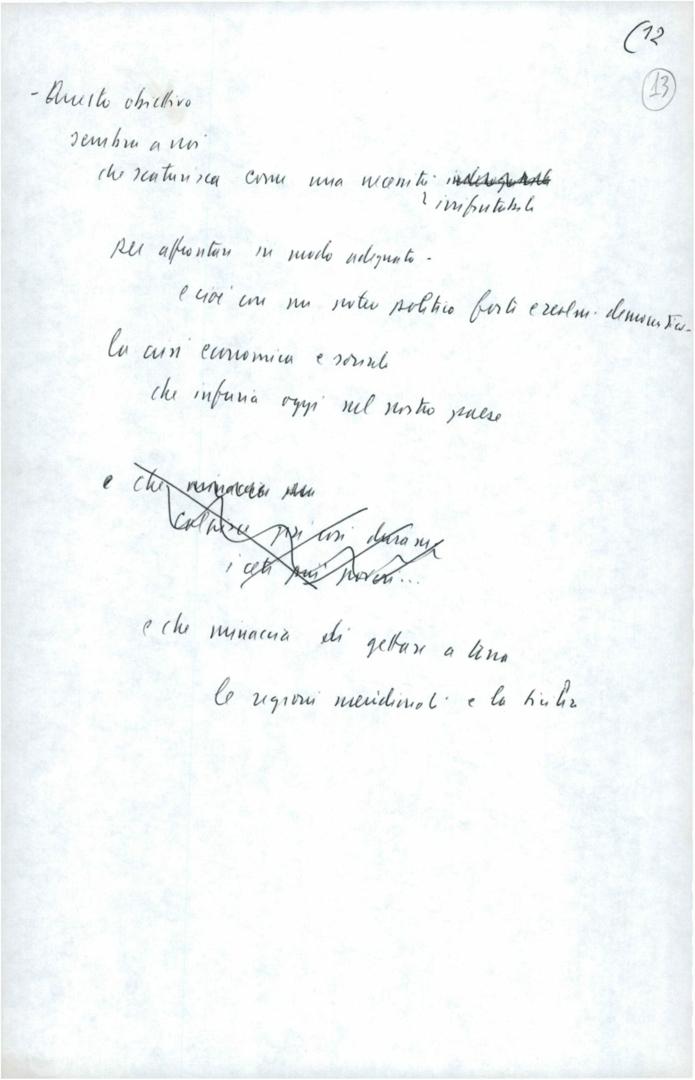 (12
13
- Questo obiettivo
sembra a noi
che scaturisca come una necessità
irrifiutabile
per affrontare in modo adeguato -
e cioè con un potere politico forte e realm. democratico -
la crisi economica e sociale
che infuria oggi nel nostro paese
e che minaccia
colpisce più così duramente
i ceti più poveri...
e che minaccia di gettare a terra
le regioni meridionali e la Sicilia